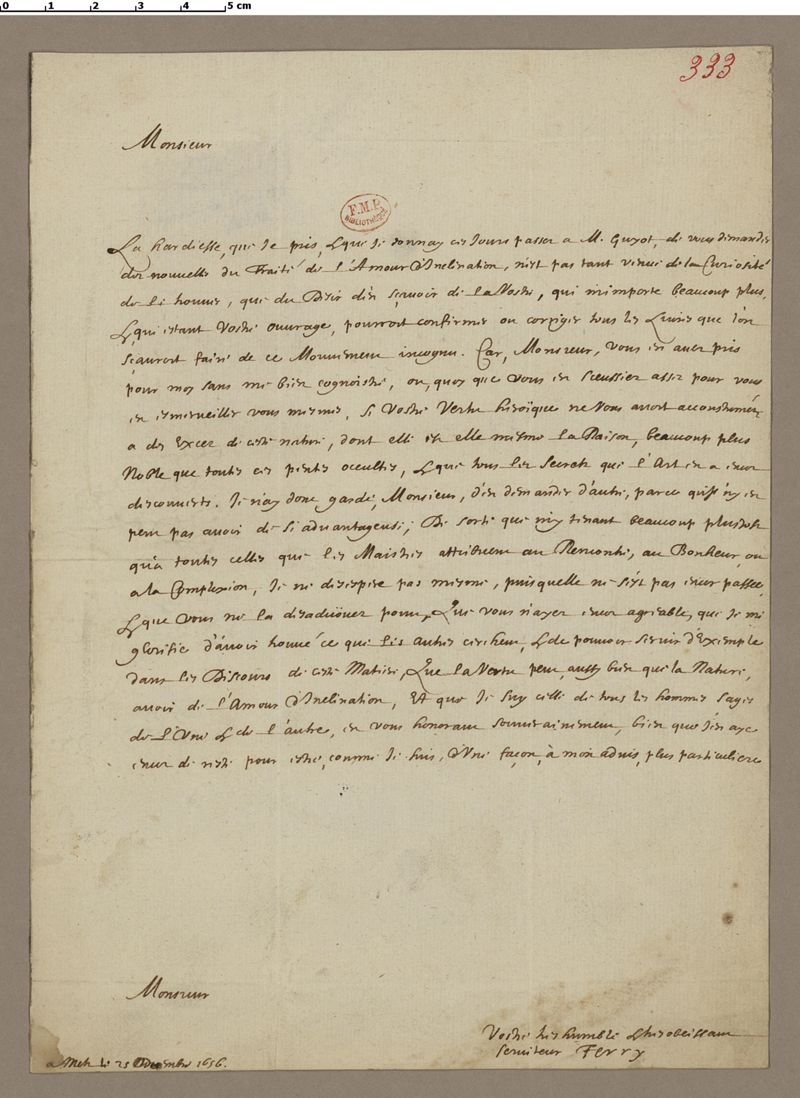 0 1 2 3 4 5 cm
333
Monsieur
F.M.P.
BIBLIOTHÈQUE
La hardiesse, que Je pris, & que Je donnay ces Jours passez a M. Guyot, de vous demander
des nouvelles du Traité de l'Amour d'Inclination, n'est pas tant venue de la Curiosité
de le , que du Desir d'en scavoir de la Vostre, qui m'importe beaucoup plus,
& qui estant Vostre ouvrage, pourroit confirmer ou corriger tous les Livres que l'on
scauroit faire de ce Mouvement incognu. Car, Monsieur, vous en avez pris
pour moy sans me bien cognoistre, ou, quoy que vous en sceussiez assez pour vous
en esmerveiller vous mesme, si Vostre Vertu héroique ne Vous avoit accoustumé
a des Excez de ceste nature, dont elle est elle mesme la Raison, beaucoup plus
Noble que toutes ces pentes occultes, & que tous les Secrets que l'Art en a encor
descouverts. Je n'ay donc garde, Monsieur, d'en demander d'autre, parce qu'Il n'y en
peut pas avoir de si advantageuse; De sorte que m'y tenant beaucoup plustost
qu'a toutes celles que les Maistres attribuent au Rencontre, au Bonheur, ou
a la Complexion, Je ne desespere pas mesme, puis quelle ne s'est pas encor passée,
& que vous ne la desadvouez point, Que vous n'ayez encor agreable, que Je me
glorifie d'avoir trouvé ce que les autres cerchent, & de pouvoir servir d'Exemple
dans les Discours de ceste Matiere, Que la Vertu peut, aussy bien que la Nature,
avoir de l'Amour d'Inclination, Et que Je suy celle de tous les hommes sages
de l'Une & de l'autre, en vous honorant souverainement, bien que J'en aye
encor de reste pour estre, comme Je suis, d'Une façon, à mon advis, plus particuliere
Monsieur
Vostre tres humble & tres obeissant
serviteur Ferry
a Metz le 25 Decembre 1656.